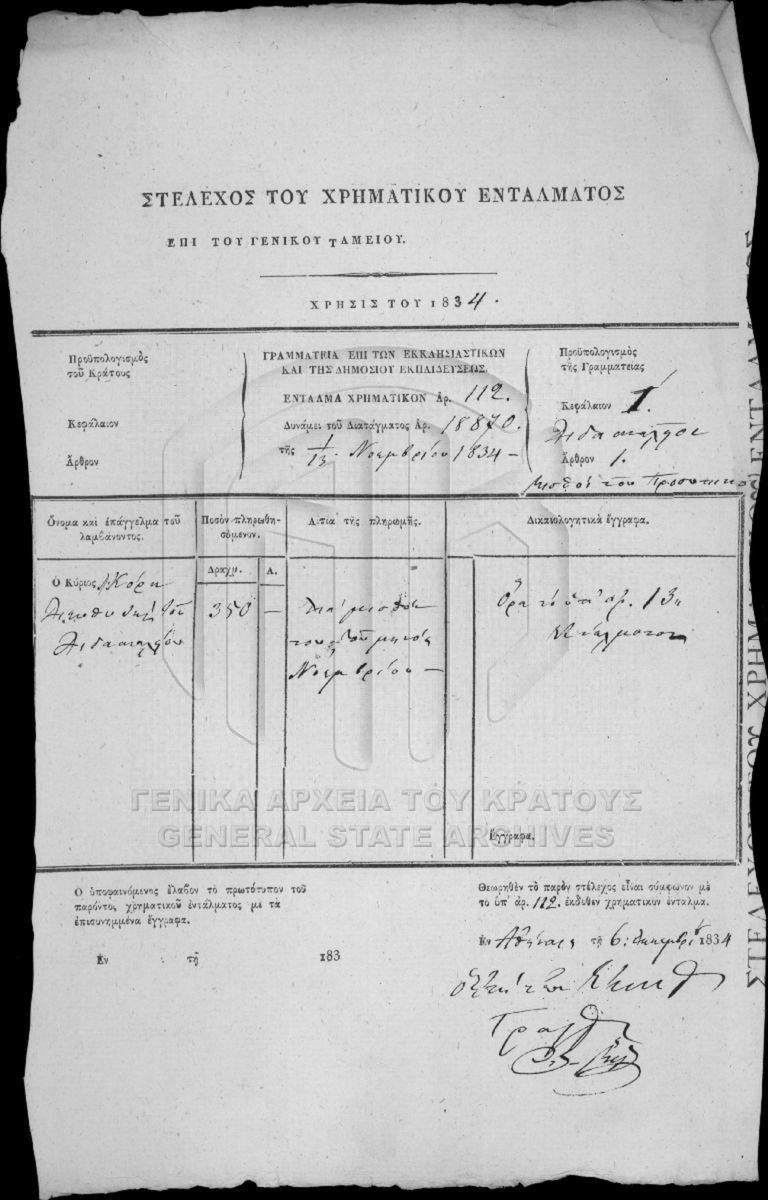 ΣΤΕΛΕΧΟΣ ΤΟΥ ΧΡΗΜΑΤΙΚΟΥ ΕΝΤΑΛΜΑΤΟΣ
ΕΠΙ ΤΟΥ ΓΕΝΙΚΟΥ ΤΑΜΕΙΟΥ.
ΧΡΗΣΙΣ ΤΟΥ 1834.
Προϋπολογισμὸς
τοῦ Κράτους
Κεφάλαιον
Ἄρθρον
ΓΡΑΜΜΑΤΕΙΑ ΕΠΙ ΤΩΝ ΕΚΚΛΗΣΙΑΣΤΙΚΩΝ
ΚΑΙ ΤΗΣ ΔΗΜΟΣΙΟΥ ΕΚΠΑΙΔΕΥΣΕΩΣ.
ΕΝΤΑΛΜΑ ΧΡΗΜΑΤΙΚΟΝ Ἀρ. 112.
Δυνάμει τοῦ Διατάγματος Ἀρ. 18870.
τῆς 1/13 Νοεμβρίου 1834 –
Προϋπολογισμὸς
τῆς Γραμματείας
Κεφάλαιον 1.
Ἄρθρον 1.
Μισθοὶ του
Ὄνομα καὶ ἐπάγγελμα τοῦ
λαμβάνοντος.
Ποσὸν πληρωθη-
σόμενον.
Αἰτία τῆς πληρωμῆς.
Δικαιολογητικὰ ἔγγραφα.
Δραχμ.
Λ.
Ὁ Κύριος Κόρη
350 –
Διὰ μισθὸν
του τοῦ μηνὸς
Νοεμβρίου –
Ὅρα τὸ ὑπ' ἀρ. 13
Ἔγγραφα.
Ὁ ὑποφαινόμενος ἔλαβον τὸ πρωτότυπον τοῦ
παρόντος χρηματικοῦ ἐντάλματος μὲ τὰ
ἐπισυνημμένα ἔγγραφα.
Ἐν τῇ 183
Θεωρηθὲν τὸ παρὸν στέλεχος εἶναι σύμφωνον μὲ
τὸ ὑπ' ἀρ. 112. ἐκδοθὲν χρηματικὸν ἔνταλμα.
Ἐν Ἀθήναις τῇ 6: Δεκεμβρίου 1834
ΣΤΕΛΕΧΟΣ ΤΟΥ ΧΡΗΜΑΤΙΚΟΥ ΕΝΤΑΛΜΑΤΟΣ
ΓΕΝΙΚΑ ΑΡΧΕΙΑ ΤΟΥ ΚΡΑΤΟΥΣ
GENERAL STATE ARCHIVES